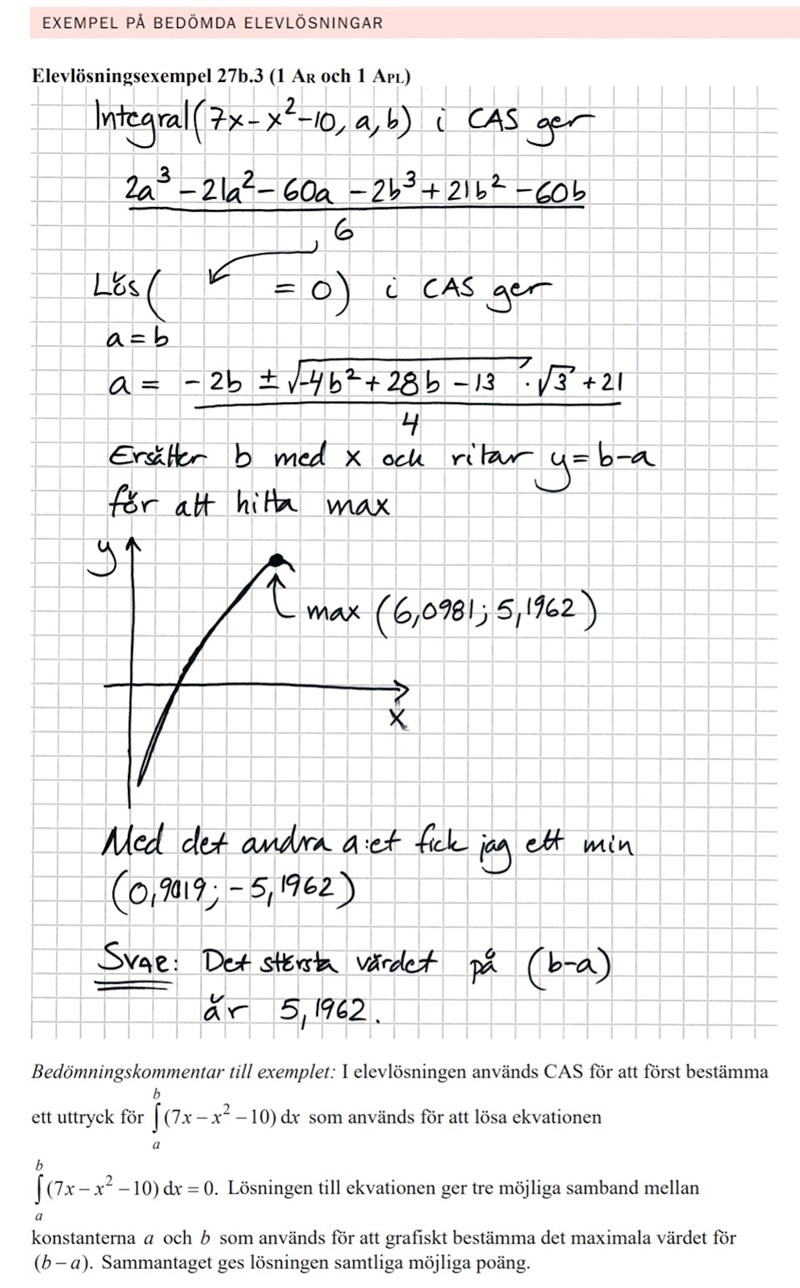 EXEMPEL PÅ BEDÖMDA ELEVLÖSNINGAR
Elevlösningsexempel 27b.3 (1 AR och 1 APL)
Integral(7x-x²-10, a, b) i CAS ger
2a³ - 21a² - 60a - 2b³ + 21b² - 60b
6
Lös( = 0) i CAS ger
a = b
a = - 2b ± √-4b² + 28b - 13 · √3 + 21
4
Ersätter b med x och ritar y = b-a
för att hitta max
y
max (6,0981; 5,1962)
x
Med det andra a:et fick jag ett min
(0,9019; -5,1962)
Svar: Det största värdet på (b-a)
är 5,1962.
Bedömningskommentar till exemplet: I elevlösningen används CAS för att först bestämma
ett uttryck för ∫ₐᵇ(7x – x² – 10) dx som används för att lösa ekvationen
∫ₐᵇ(7x – x² – 10) dx = 0. Lösningen till ekvationen ger tre möjliga samband mellan
konstanterna a och b som används för att grafiskt bestämma det maximala värdet för
(b – a). Sammantaget ges lösningen samtliga möjliga poäng.